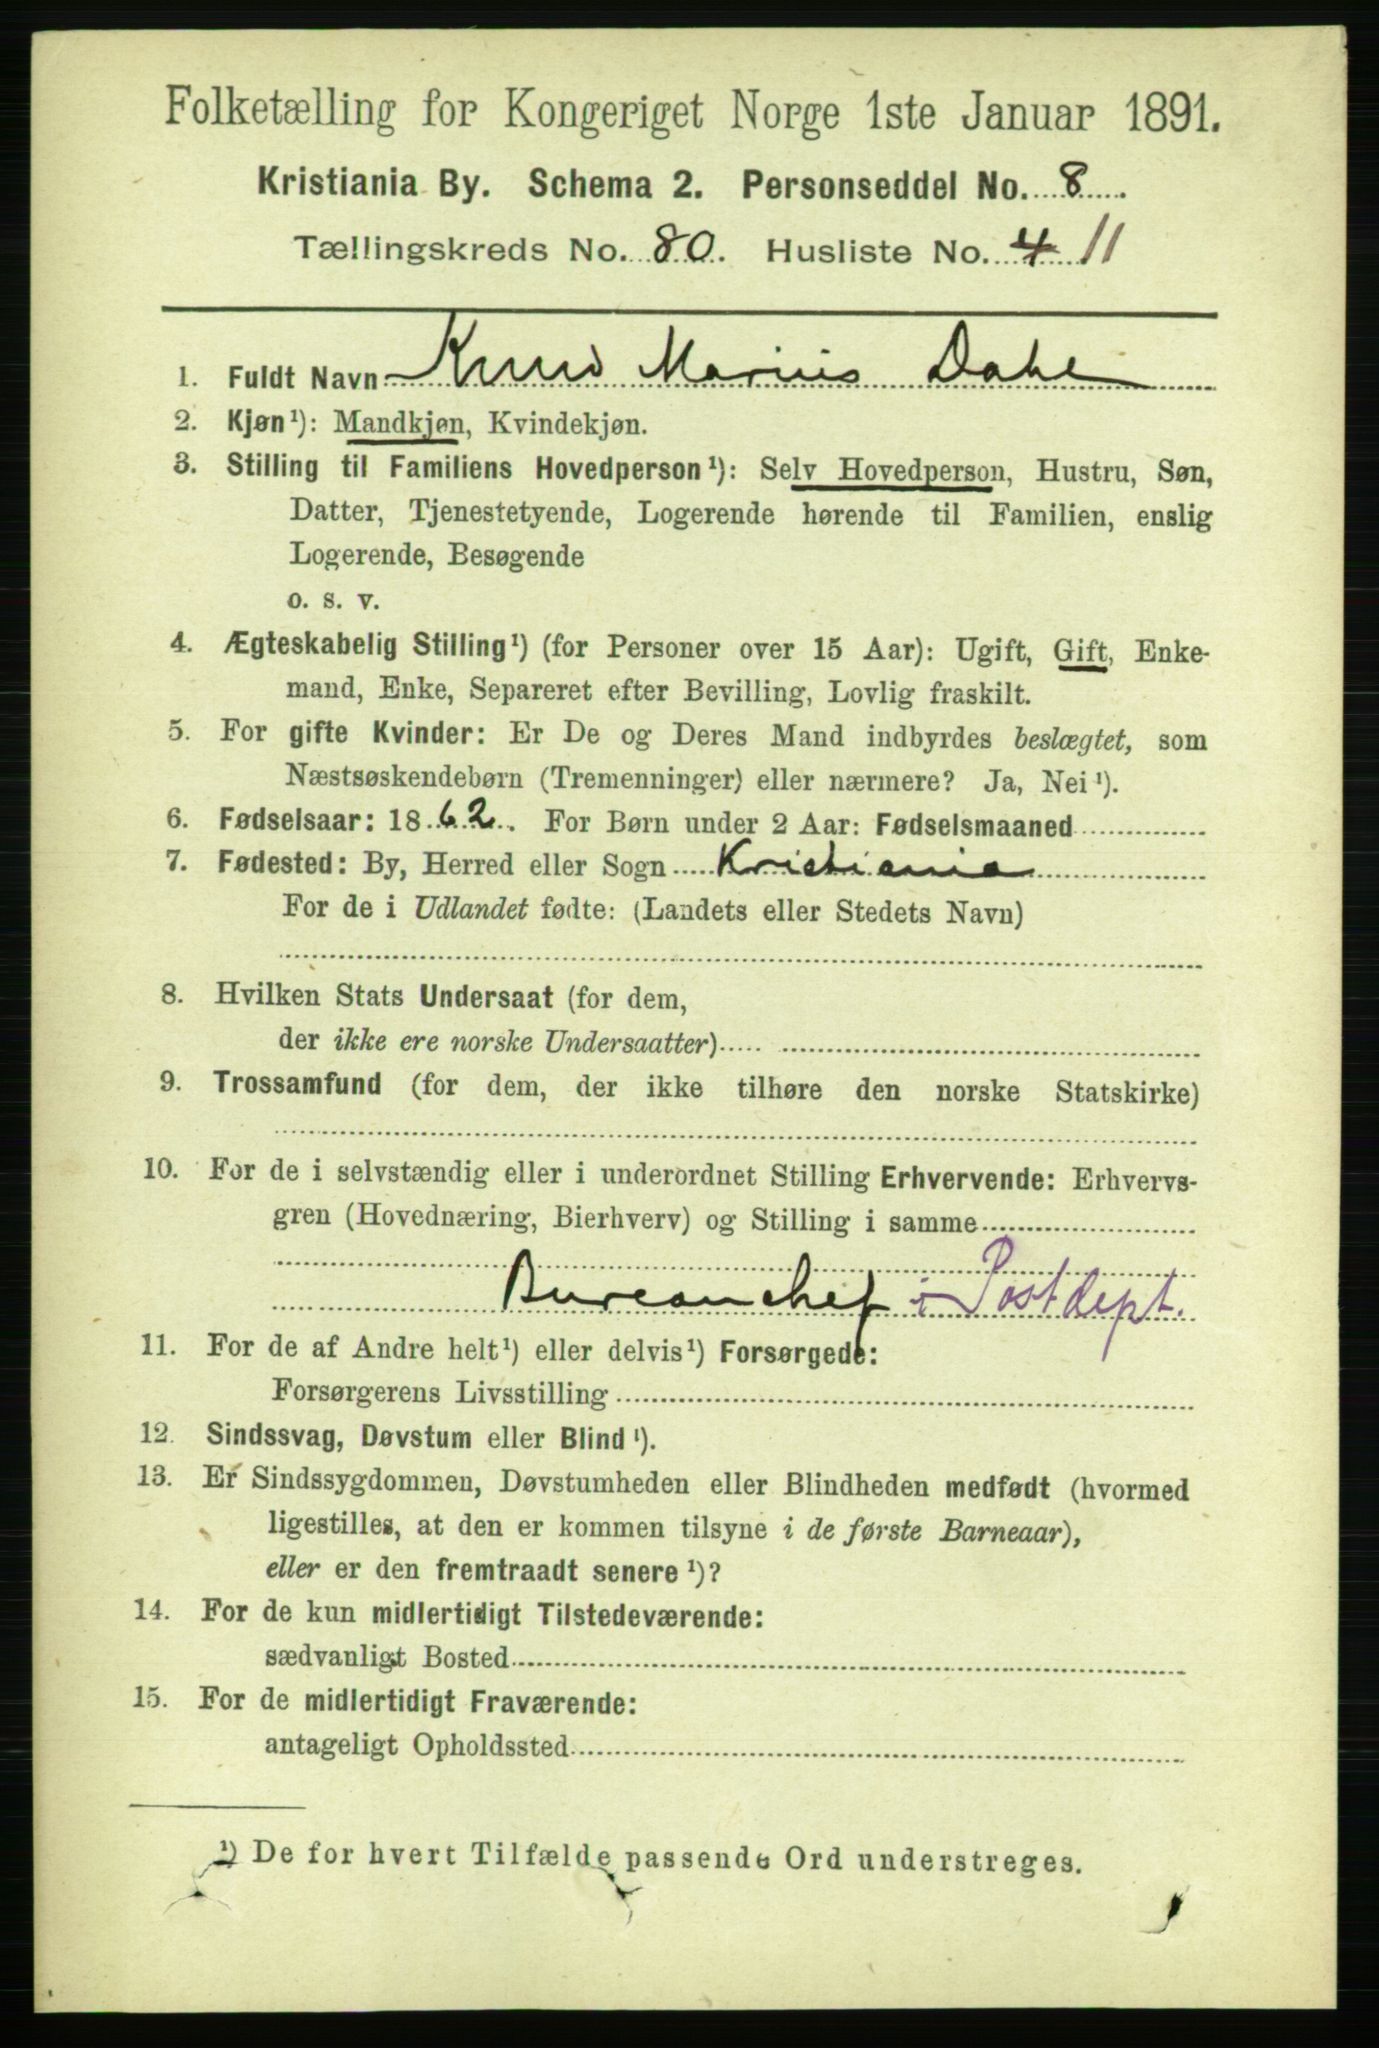 Folketælling for Kongeriget Norge 1ste Januar 1891.
Kristiania By. Schema 2. Personseddel No. 8
Tællingskreds No. 80. Husliste No. 4 11
1. Fuldt Navn Knud Marius Dahl
2. Kjøn¹): Mandkjøn, Kvindekjøn.
3. Stilling til Familiens Hovedperson¹): Selv Hovedperson, Hustru, Søn,
Datter, Tjenestetyende, Logerende hørende til Familien, enslig
Logerende, Besøgende
o. s. v.
4. Ægteskabelig Stilling¹) (for Personer over 15 Aar): Ugift, Gift, Enke-
mand, Enke, Separeret efter Bevilling, Lovlig fraskilt.
5. For gifte Kvinder: Er De og Deres Mand indbyrdes beslægtet, som
Næstsøskendebørn (Tremenninger) eller nærmere? Ja, Nei¹).
6. Fødselsaar: 1862. For Børn under 2 Aar: Fødselsmaaned
7. Fødested: By, Herred eller Sogn Kristiania
For de i Udlandet fødte: (Landets eller Stedets Navn)
8. Hvilken Stats Undersaat (for dem,
der ikke ere norske Undersaatter)
9. Trossamfund (for dem, der ikke tilhøre den norske Statskirke)
10. For de i selvstændig eller i underordnet Stilling Erhvervende: Erhvervs-
gren (Hovednæring, Bierhverv) og Stilling i samme
Bureauchef i Postdept.
11. For de af Andre helt¹) eller delvis¹) Forsørgede:
Forsørgerens Livsstilling
12. Sindssvag, Døvstum eller Blind¹).
13. Er Sindssygdommen, Døvstumheden eller Blindheden medfødt (hvormed
ligestilles, at den er kommen tilsyne i de første Barneaar),
eller er den fremtraadt senere¹)?
14. For de kun midlertidigt Tilstedeværende:
sædvanligt Bosted
15. For de midlertidigt Fraværende:
antageligt Opholdssted
¹) De for hvert Tilfælde passende Ord understreges.